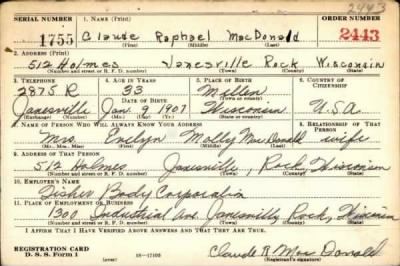 2443
SERIAL NUMBER 1. NAME (Print) ORDER NUMBER
1755 Claude Raphael MacDonald 2443
(First) (Middle) (Last)
2. ADDRESS (Print)
512 Holmes Janesville Rock Wisconsin
(Number and street or R. F. D. number) (Town) (County) (State)
3. TELEPHONE 4. AGE IN YEARS 5. PLACE OF BIRTH 6. COUNTRY OF CITIZENSHIP
2875 R 33 Mellen
DATE OF BIRTH (Town or county)
Janesville Jan 9 1907 Wisconsin U.S.A.
(Exchange) (Number) (Mo.) (Day) (Yr.) (State or country)
7. NAME OF PERSON WHO WILL ALWAYS KNOW YOUR ADDRESS 8. RELATIONSHIP OF THAT PERSON
Mrs Evelyn Molly MacDonald wife
(Mr., Mrs., Miss) (First) (Middle) (Last)
9. ADDRESS OF THAT PERSON
512 Holmes Janesville, Rock, Wisconsin
(Number and street or R. F. D. number) (Town) (County) (State)
10. EMPLOYER'S NAME
Fisher Body Corporation
11. PLACE OF EMPLOYMENT OR BUSINESS
1300 Industrial Ave Janesville, Rock, Wisconsin
(Number and street or R. F. D. number) (Town) (County) (State)
I AFFIRM THAT I HAVE VERIFIED ABOVE ANSWERS AND THAT THEY ARE TRUE.
REGISTRATION CARD
D. S. S. Form 1 (over) 16—17105 Claude R MacDonald
(Registrant's signature)